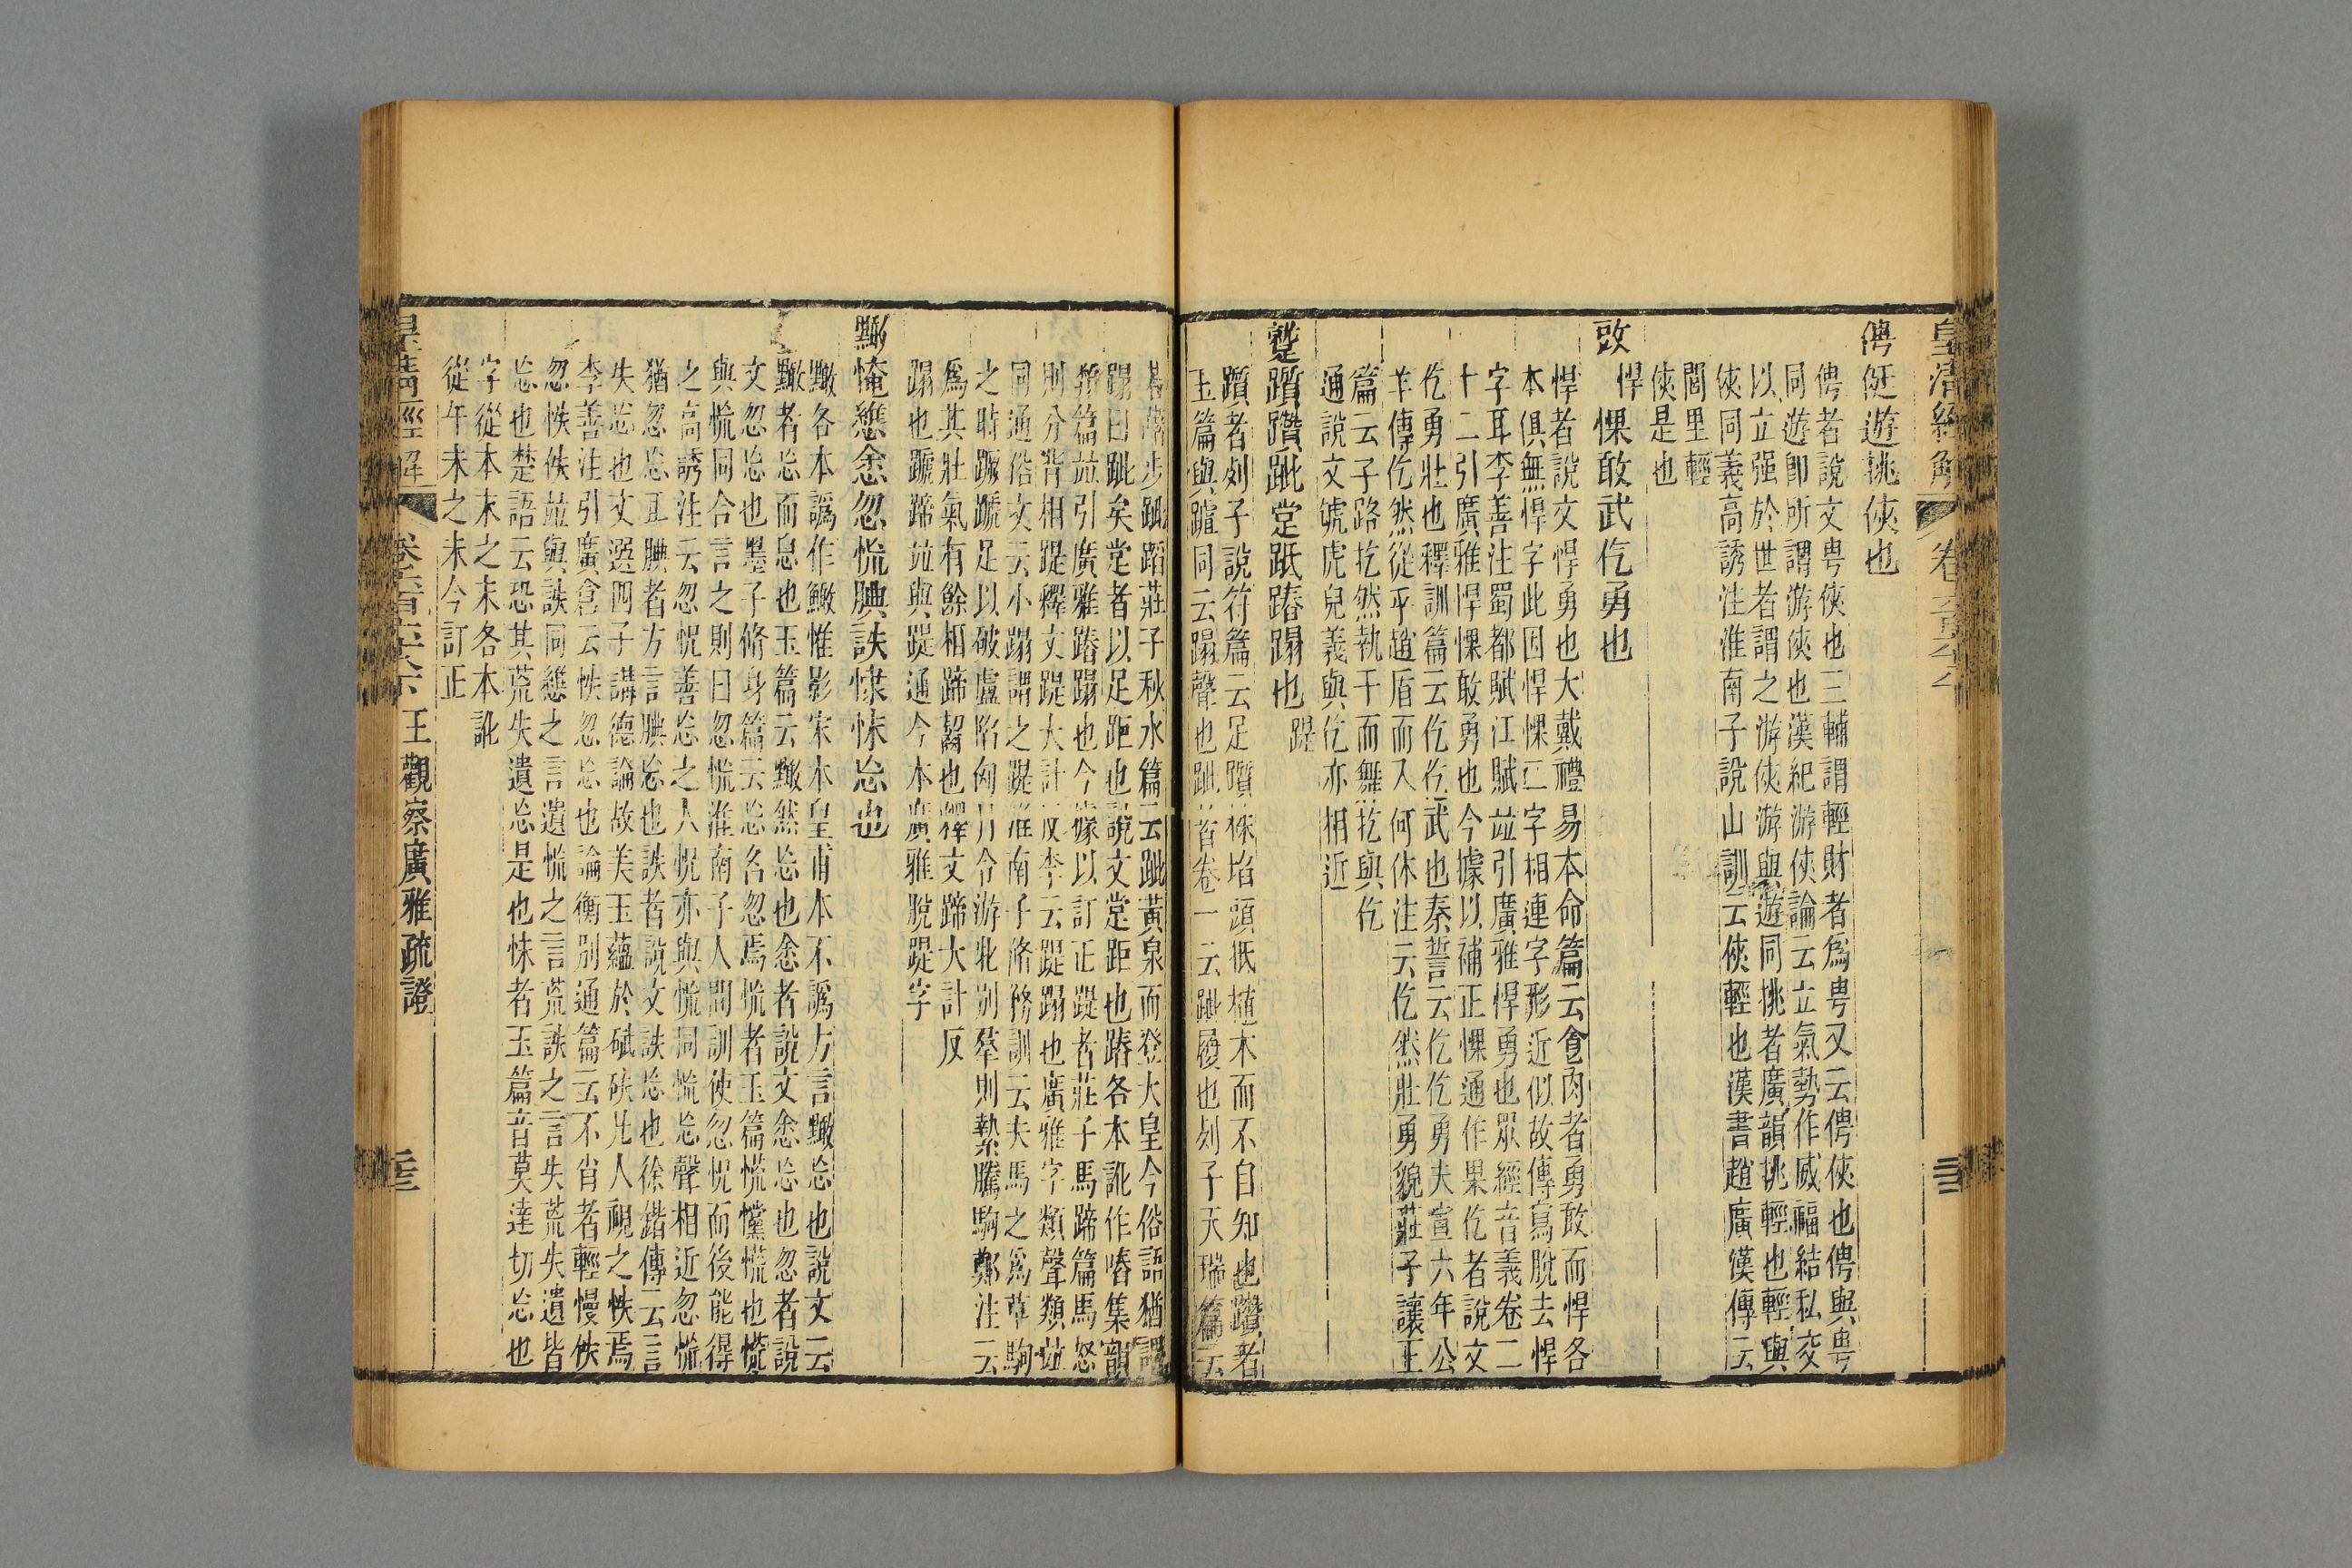 皇清經解 卷六百六十
俜侹遊挑俠也
俜者說文甹俠也三輔謂輕財者爲甹又云俜俠也俜與甹
同遊卽所謂游俠也漢紀游俠論云立氣勢作威福結私交
以立强於世者謂之游俠游與遊同挑者廣韻挑輕也輕與
俠同義高誘注淮南子說山訓云俠輕也漢書趙廣漢傳云
閭里輕
俠是也
敢 悍惈敢武仡勇也
悍者說文悍勇也大戴禮易本命篇云食肉者勇敢而悍各
本俱無悍字此因悍惈二字相連字形近似故傳寫脫去悍
字耳李善注蜀都賦江賦竝引廣雅悍勇也眾經音義卷二
十二引廣雅悍惈敢勇也今據以補正惈通作果仡者說文
仡勇壯也釋訓篇云仡仡武也秦誓云仡仡勇夫宣六年公
羊傳仡然從乎趙盾而入何休注云仡然壯勇貌莊子讓王
篇云子路扢然執干而舞扢與仡
通說文虓虎皃義與仡亦相近
躗躓躦跐堂跖蹖蹋也 踶
躓者列子說符篇云足躓株埳頭抵植木而不自知也躦者
玉篇與躖同云蹋聲也跐音卷一云跐履也列子天瑞篇云
若躇步跐蹈莊子秋水篇云跐黃泉而登大皇今俗語猶謂
蹋曰跐矣堂者以足距也說文堂距也蹖各本訛作㖺集韻
類篇竝引廣雅蹖蹋也今據以訂正踶者莊子馬蹄篇馬怒
則分背相踶釋文踶大計反李云踶蹋也廣雅字類聲類竝
同通俗文云小蹋謂之踶淮南子脩務訓云夫馬之爲草駒
之時蹶蹏足以破盧陷匈月令游牝別羣則縶騰駒鄭注云
爲其壯氣有餘相蹄齧也釋文蹄大計反
蹋也蹏蹄竝與踶通今本廣雅脫踶字
㸃㤿㦡悆忽慌腆詄㥦怽忘也
㸃各本譌作鰍惟影宋本皇甫本不譌方言㸃忘也說文云
㸃者忘而息也玉篇云㸃然忘也悆者說文悆忘也忽者說
文忽忘也墨子脩身篇云忘名忽焉慌者玉篇慌懭慌也慌
與㡃同合言之則曰忽慌淮南子人閒訓使忽怳而後能得
之高誘注云忽怳善忘之人怳亦與慌同慌忘聲相近忽慌
猶忽忘耳腆者方言腆忘也詄者說文詄忘也徐鍇傳云言
失忘也文選四子講德論故美玉蘊於碔砆凡人視之怢焉
李善注引廣倉云怢忽忘也論衡別通篇云不肖者輕慢佚
忽怢佚竝與詄同㦡之言遺慌之言荒詄之言失荒失遺皆
忘也楚語云恐其荒失遺忘是也怽者玉篇音莫達切忘也
字從本末之末各本訛
從午未之未今訂正
皇清經解 卷六百六十 王觀察廣雅疏證 三